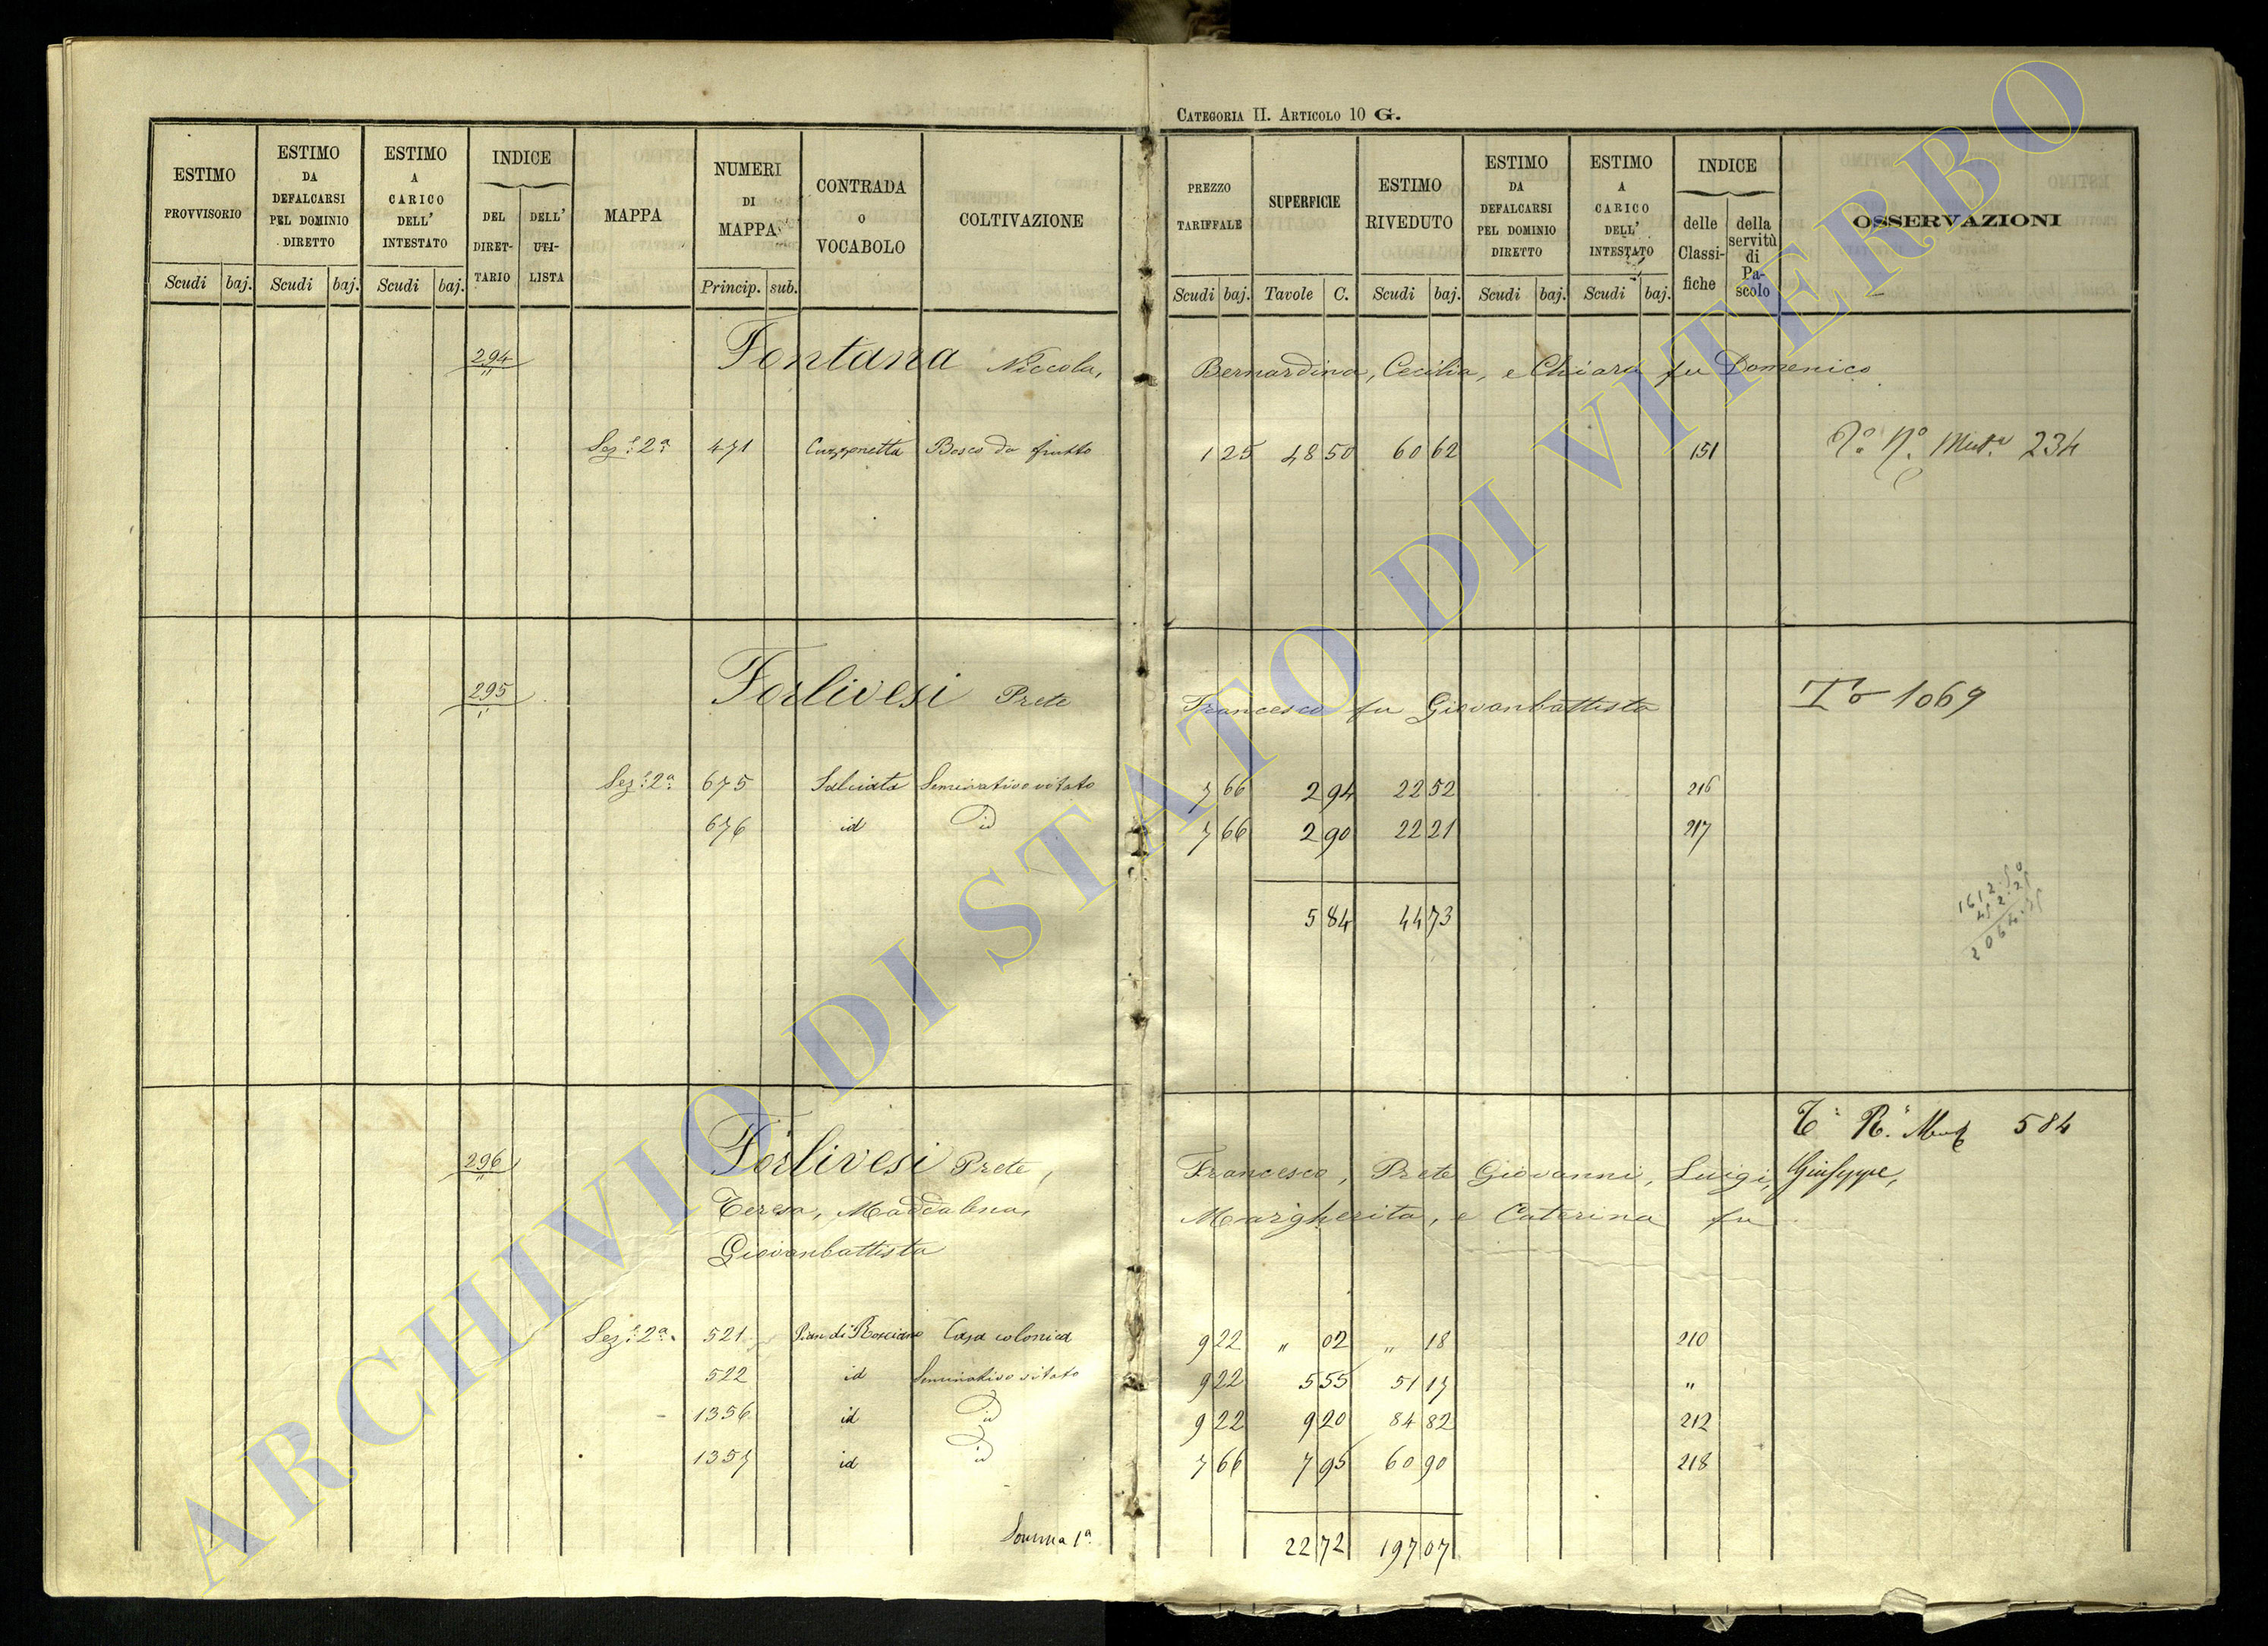 CATEGORIA II. ARTICOLO 10 G.
ESTIMO PROVVISORIO Scudi baj.
ESTIMO DA DEFALCARSI PEL DOMINIO DIRETTO Scudi baj.
ESTIMO A CARICO DELL' INTESTATO Scudi baj.
INDICE DEL DIRETTARIO DELL' UTILISTA
MAPPA
NUMERI DI MAPPA Princip. sub.
CONTRADA O VOCABOLO
COLTIVAZIONE
PREZZO TARIFFALE Scudi baj.
SUPERFICIE Tavole C.
ESTIMO RIVEDUTO Scudi baj.
ESTIMO DA DEFALCARSI PEL DOMINIO DIRETTO Scudi baj.
ESTIMO A CARICO DELL' INTESTATO Scudi baj.
INDICE delle Classifiche della servitù di Pascolo
OSSERVAZIONI
294 Fontana Niccola, Bernardina, Cecilia, e Chiara fu Domenico
Sez: 2ª 471 Cuzzonetta Bosco da frutto 1 25 48 50 60 62 151 234
295 Forlivesi Prete Francesco fu Giovanbattista 1069
Sez: 2ª 675 Salciata Seminativo vitato 7 66 2 94 22 52 216
676 id id 7 66 2 90 22 21 217
5 84 44 73
1612.50
452.25
2064.75
584
296 Forlivesi Prete, Francesco, Prete Giovanni, Luigi, Giuseppe,
Teresa, Maddalena, Margherita, e Caterina fu
Giovanbattista
Sez: 2ª 521 Pian di Rosciano Casa colonica 9 22 " 02 " 18 210
522 id Seminativo vitato 9 22 5 55 51 17 "
1356 id id 9 22 9 20 84 82 212
1357 id id 7 66 7 95 60 90 218
Somma 1ª 22 72 197 07
ARCHIVIO DI STATO DI VITERBO